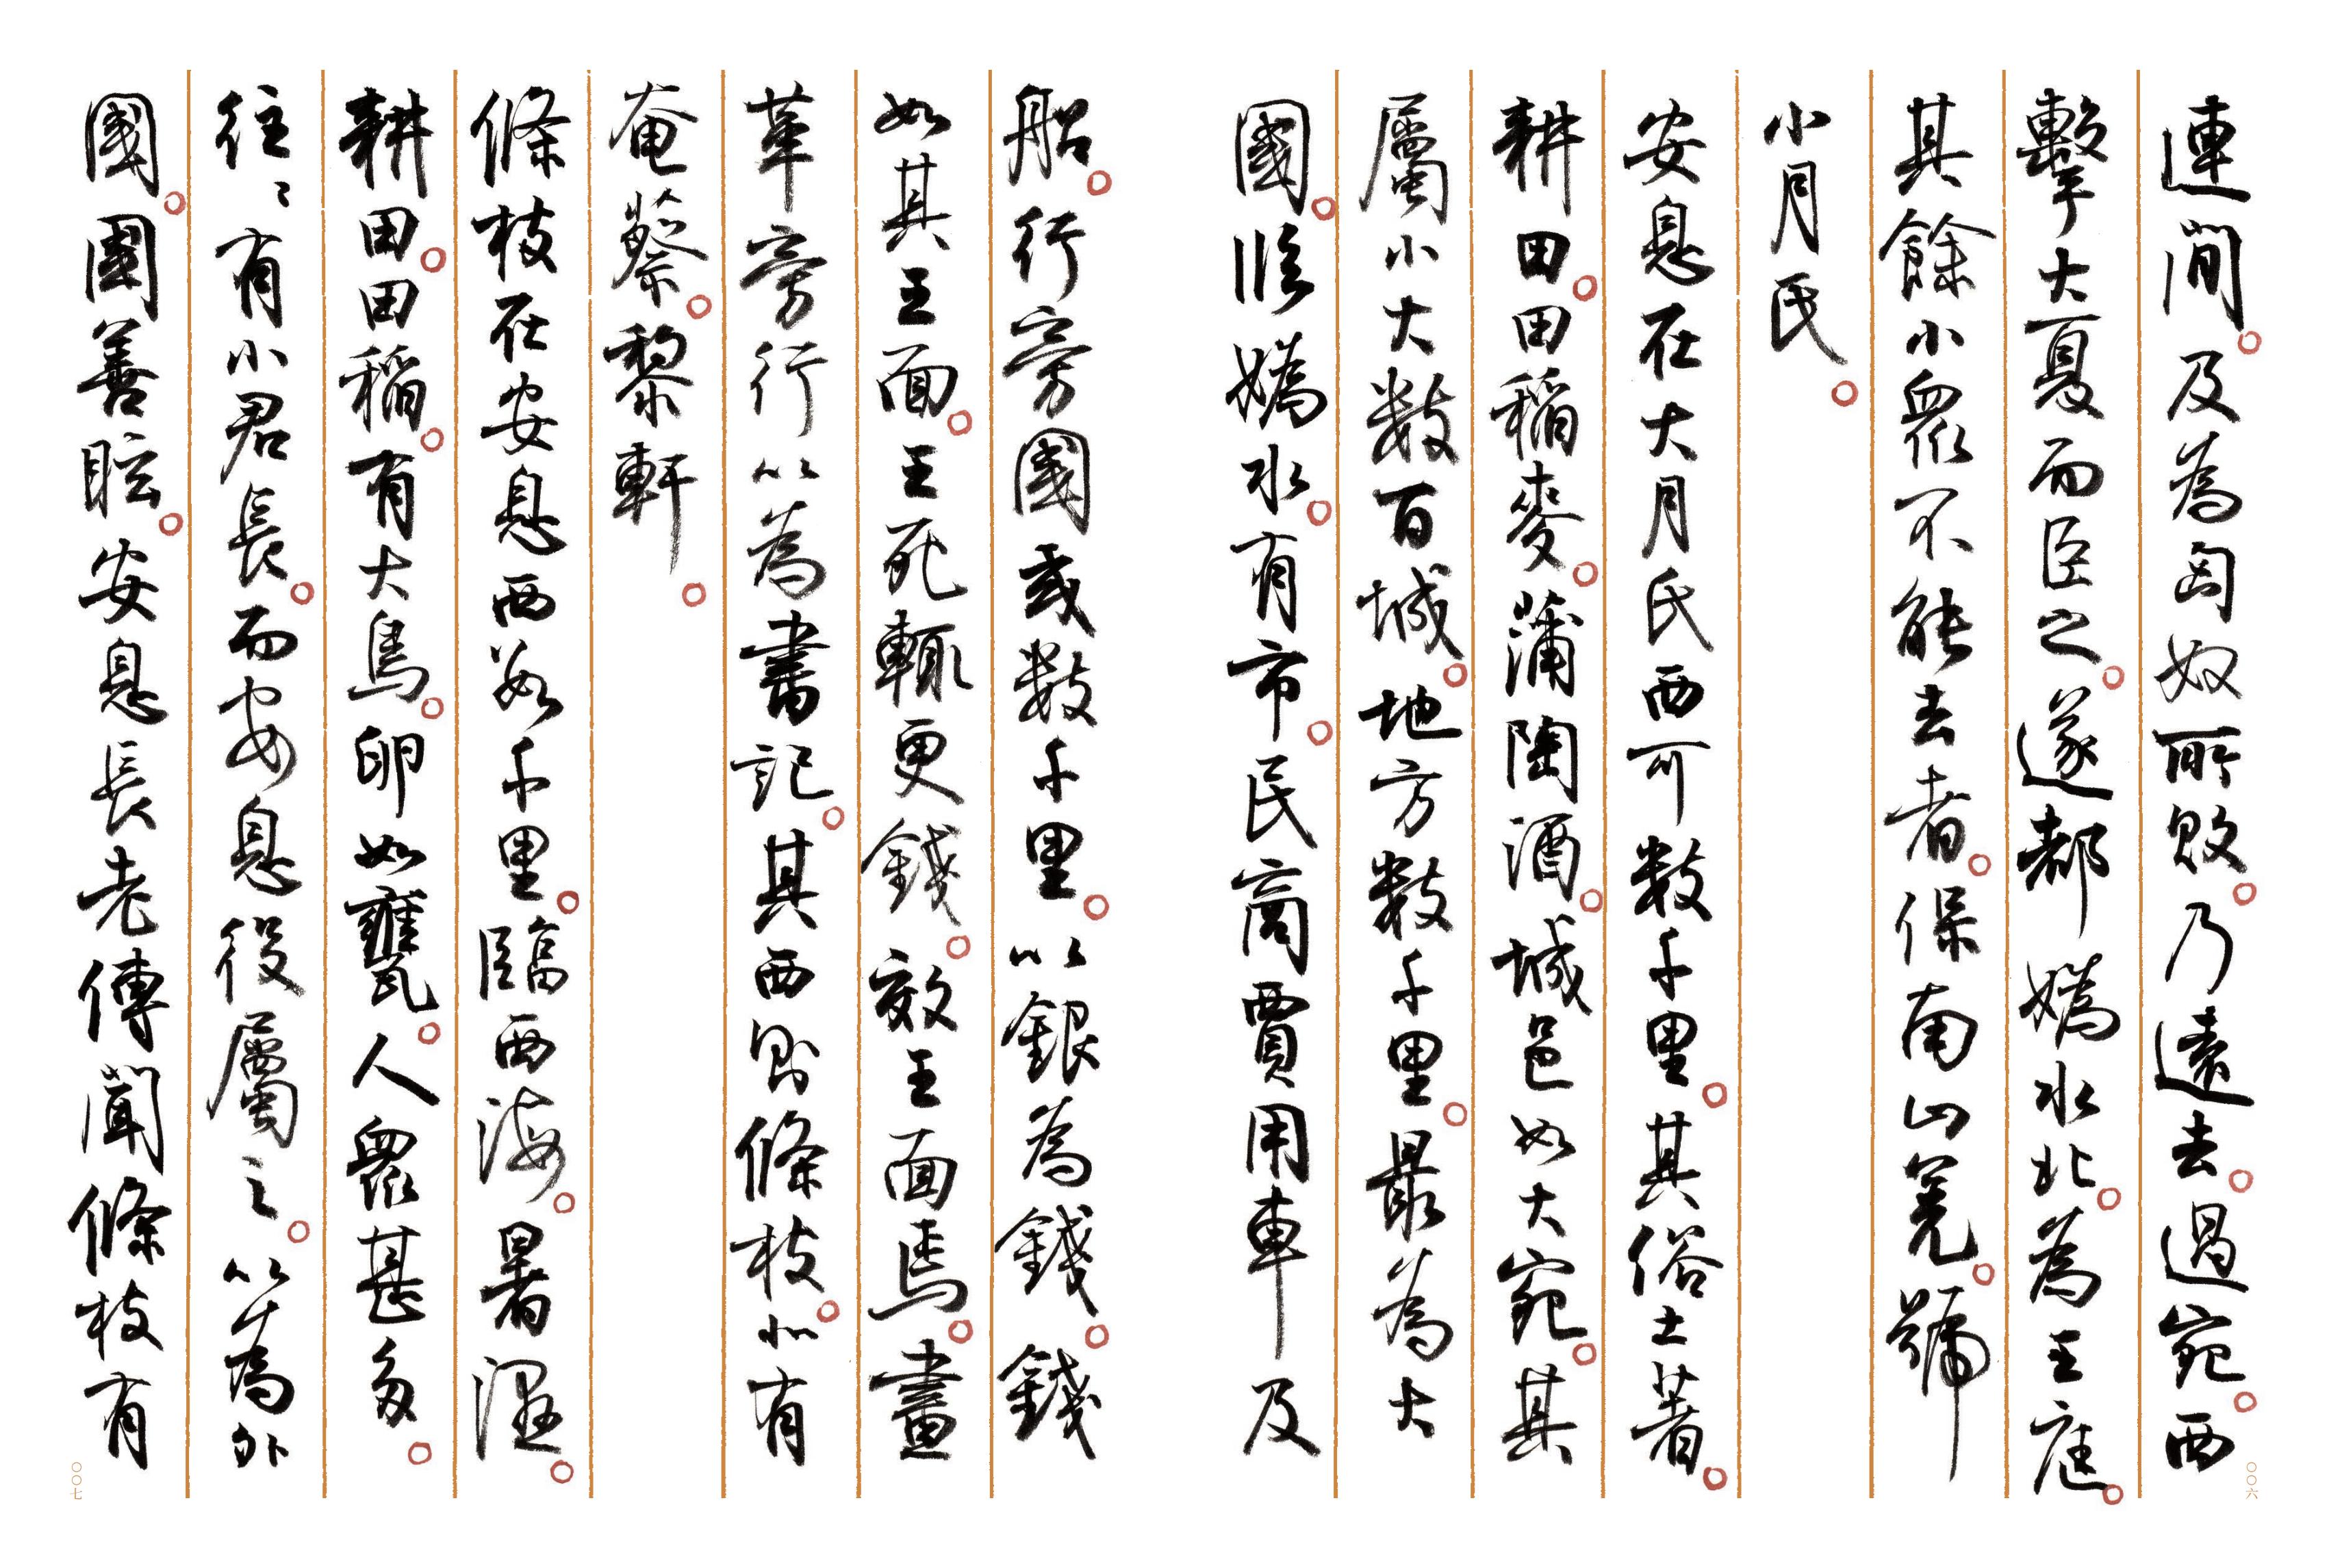 連間。及為匈奴所敗。乃遠去。過宛。西
擊大夏而臣之。遂都媯水北。為王庭。
其餘小眾不能去者。保南山羌。號
小月氏。
安息在大月氏西可數千里。其俗土著。
耕田。田稻麥。蒲陶酒。城邑如大宛。其
屬小大數百城。地方數千里。最為大
國。臨媯水。有市。民商賈用車及
〇〇六
船。行旁國或數千里。以銀為錢。錢
如其王面。王死輒更錢。效王面焉。畫
革旁行以為書記。其西則條枝。北有
奄蔡。黎軒。
條枝在安息西數千里。臨西海。暑濕。
耕田。田稻。有大鳥。卵如甕。人眾甚多。
往〻有小君長。而安息役屬之。以為外
國。國善眩。安息長老傳聞條枝有
〇〇七